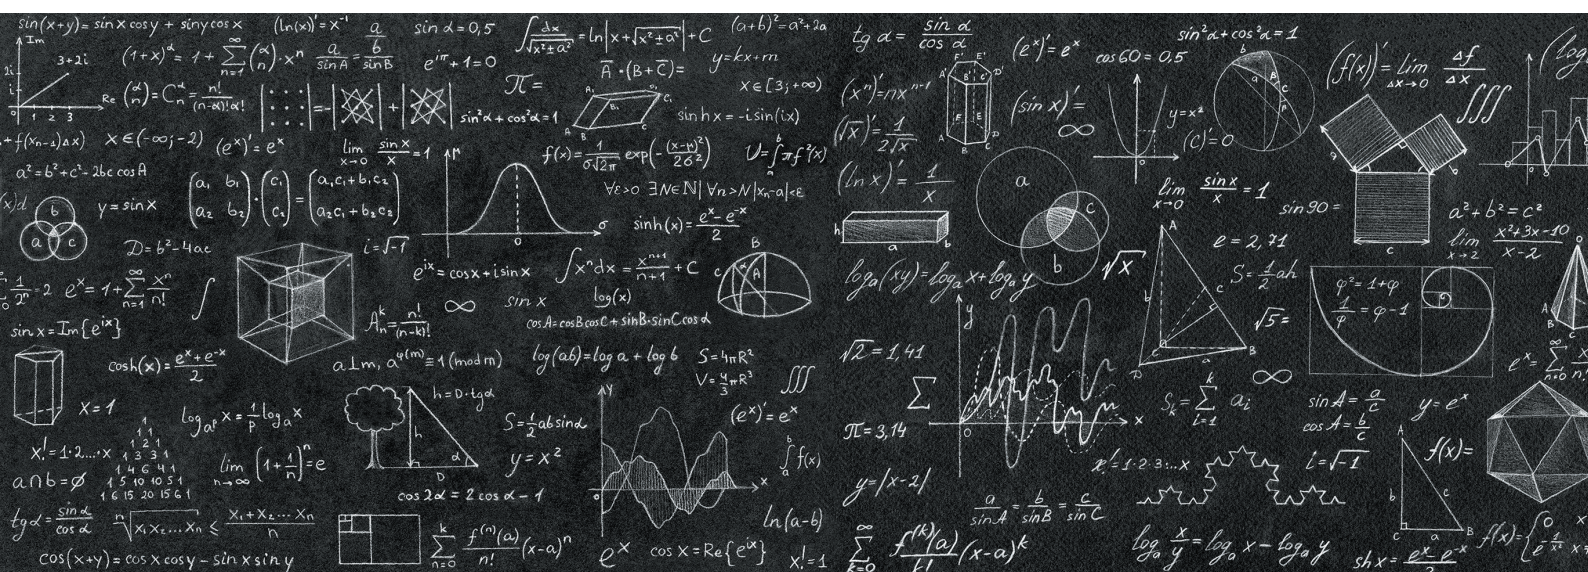 sin(x+y) = sin x cos y + sin y cos x
(ln(x))' = x⁻¹
a/sinA = b/sinB
sin α = 0,5
∫ dx/√(x²±a²) = ln|x+√(x²±a²)| + C
(a+b)² = a²+2a
Im
3+2i
2i
i
1 2 3
Re
(1+x)^α = 1 + ∑_{n=1}^{∞} (α n)·xⁿ
e^{iπ}+1=0
A·(B+C)=
y=kx+m
π=
x∈[3;+∞)
sin²α + cos²α = 1
sinh x = -i sin(ix)
+ f(xₙ₋₁)Δx)
x∈(-∞;-2)
(eˣ)' = eˣ
lim_{x→0} sin x/x = 1
f(x) = 1/(σ√2π) exp(-(x-μ)²/2σ²)
a² = b² + c² - 2bc cos A
(a₁ b₁ a₂ b₂)·(c₁ c₂) = (a₁c₁+b₁c₂ a₂c₁+b₂c₂)
∀ε>0 ∃N∈ℕ| ∀n>N |xₙ-a|<ε
a b c
y = sin x
sinh(x) = (eˣ - e⁻ˣ)/2
D = b² - 4ac
i = √-1
e^{ix} = cos x + i sin x
∫xⁿdx = xⁿ⁺¹/(n+1) + C
eˣ = 1 + ∑_{n=1}^{∞} xⁿ/n!
∫
∞
sin x
log(x)
sin x = Im{e^{ix}}
Aₙᵏ = n!/(n-k)!
cos A = cos B cos C + sin B · sin C cos α
cosh(x) = (eˣ + e⁻ˣ)/2
a⊥m, a^{φ(m)} ≡ 1 (mod m)
log(ab) = log a + log b
S = 4πR²
V = 4/3 πR³
∭
x = 1
log_{aᵖ} x = 1/p log_a x
h = D·tgα
S = 1/2 ab sin α
(eˣ)' = eˣ
x! = 1·2...·x
1
1 1
1 2 1
1 3 3 1
1 4 6 4 1
1 5 10 10 5 1
1 6 15 20 15 6 1
lim_{n→∞} (1 + 1/n)ⁿ = e
h
D
α
y = x²
∫ₐᵇ f(x)
a∩b = ∅
cos 2α = 2 cos α - 1
tg α = sin α/cos α
ⁿ√(x₁x₂...xₙ) ≤ (x₁+x₂...xₙ)/n
ln(a-b)
cos(x+y) = cos x cos y - sin x sin y
∑_{n=0}^{k} f⁽ⁿ⁾(a)/n! (x-a)ⁿ
eˣ
cos x = Re{e^{ix}}
x! = 1
tg α = sin α/cos α
(eˣ)' = eˣ
cos60 = 0,5
sin²α + cos²α = 1
(f(x))' = lim_{Δx→0} Δf/Δx
(xⁿ)' = nxⁿ⁻¹
(sin x)' =
∞
y = x²
(C)' = 0
∭
(√x)' = 1/2√x
(ln x)' = 1/x
a b c
lim_{x→0} sin x/x = 1
sin90 =
a² + b² = c²
h a b
e = 2,71
lim_{x→2} (x²+3x-10)/(x-2)
logₐ(xy) = logₐx + logₐy
√x
S = 1/2 ah
φ² = 1+φ
1/φ = φ - 1
√5 =
√2 = 1,41
∑
y
x
0
∞
Sₖ = ∑_{i=1}^{k} aᵢ
sin A = a/c
cos A = b/c
y = eˣ
π = 3,14
x! = 1·2·3·...x
i = √-1
f(x) =
y = |x-2|
a/sinA = b/sinB = c/sinC
∑_{k=0}^{∞} f⁽ᵏ⁾(a)/k! (x-a)ᵏ
logₐ x/y = logₐx - logₐy
sh x = eˣ - e⁻ˣ